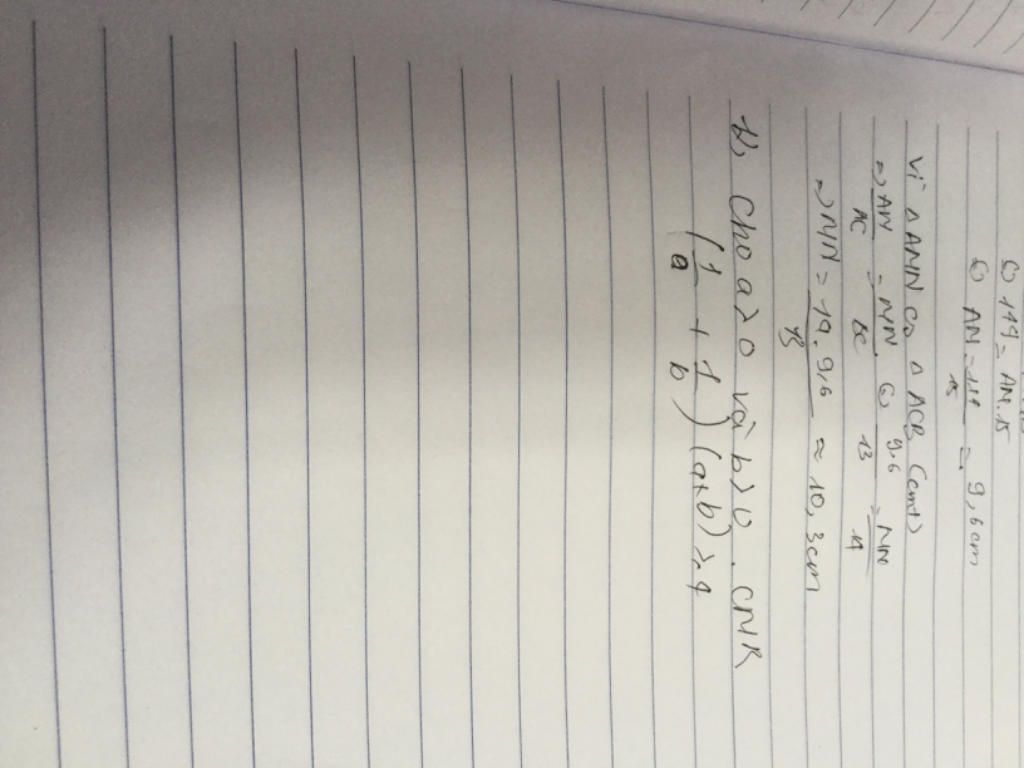 (=) 144 = AN.15
(=) AN = 144/15 = 9,6 cm
Vì Δ AMN ~ Δ ACB (cmt)
=> AN/AC = MN/BC (=) 9,6/13 = MN/14
=> MN = 14.9,6/13 ≈ 10,3 cm
b, Cho a > 0 và b > 0. CMR
(1/a + 1/b) (a+b) ≥ 4